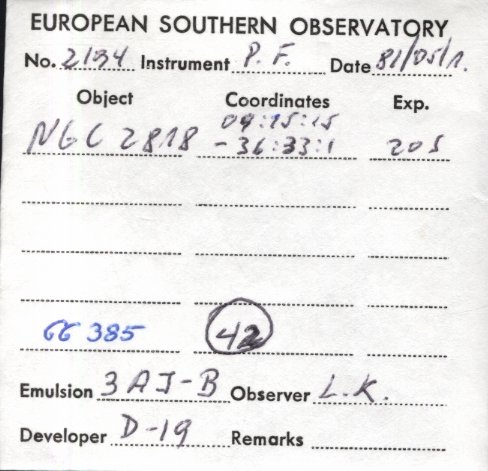 EUROPEAN SOUTHERN OBSERVATORY
No. 2194 Instrument P.F. Date 81/05/1.
Object Coordinates Exp.
09:15:15
NGC 2818 -36:33:1 20s
GG 385 42
Emulsion 3AJ-B Observer L.K.
Developer D-19 Remarks